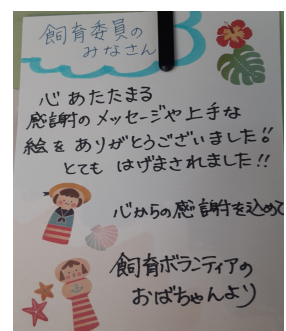 飼育委員の
みなさん
心あたたまる
感謝のメッセージや上手な
絵をありがとうございました!!
とても はげまされました!!
心からの感謝を込めて
飼育ボランティアの
おばちゃんより